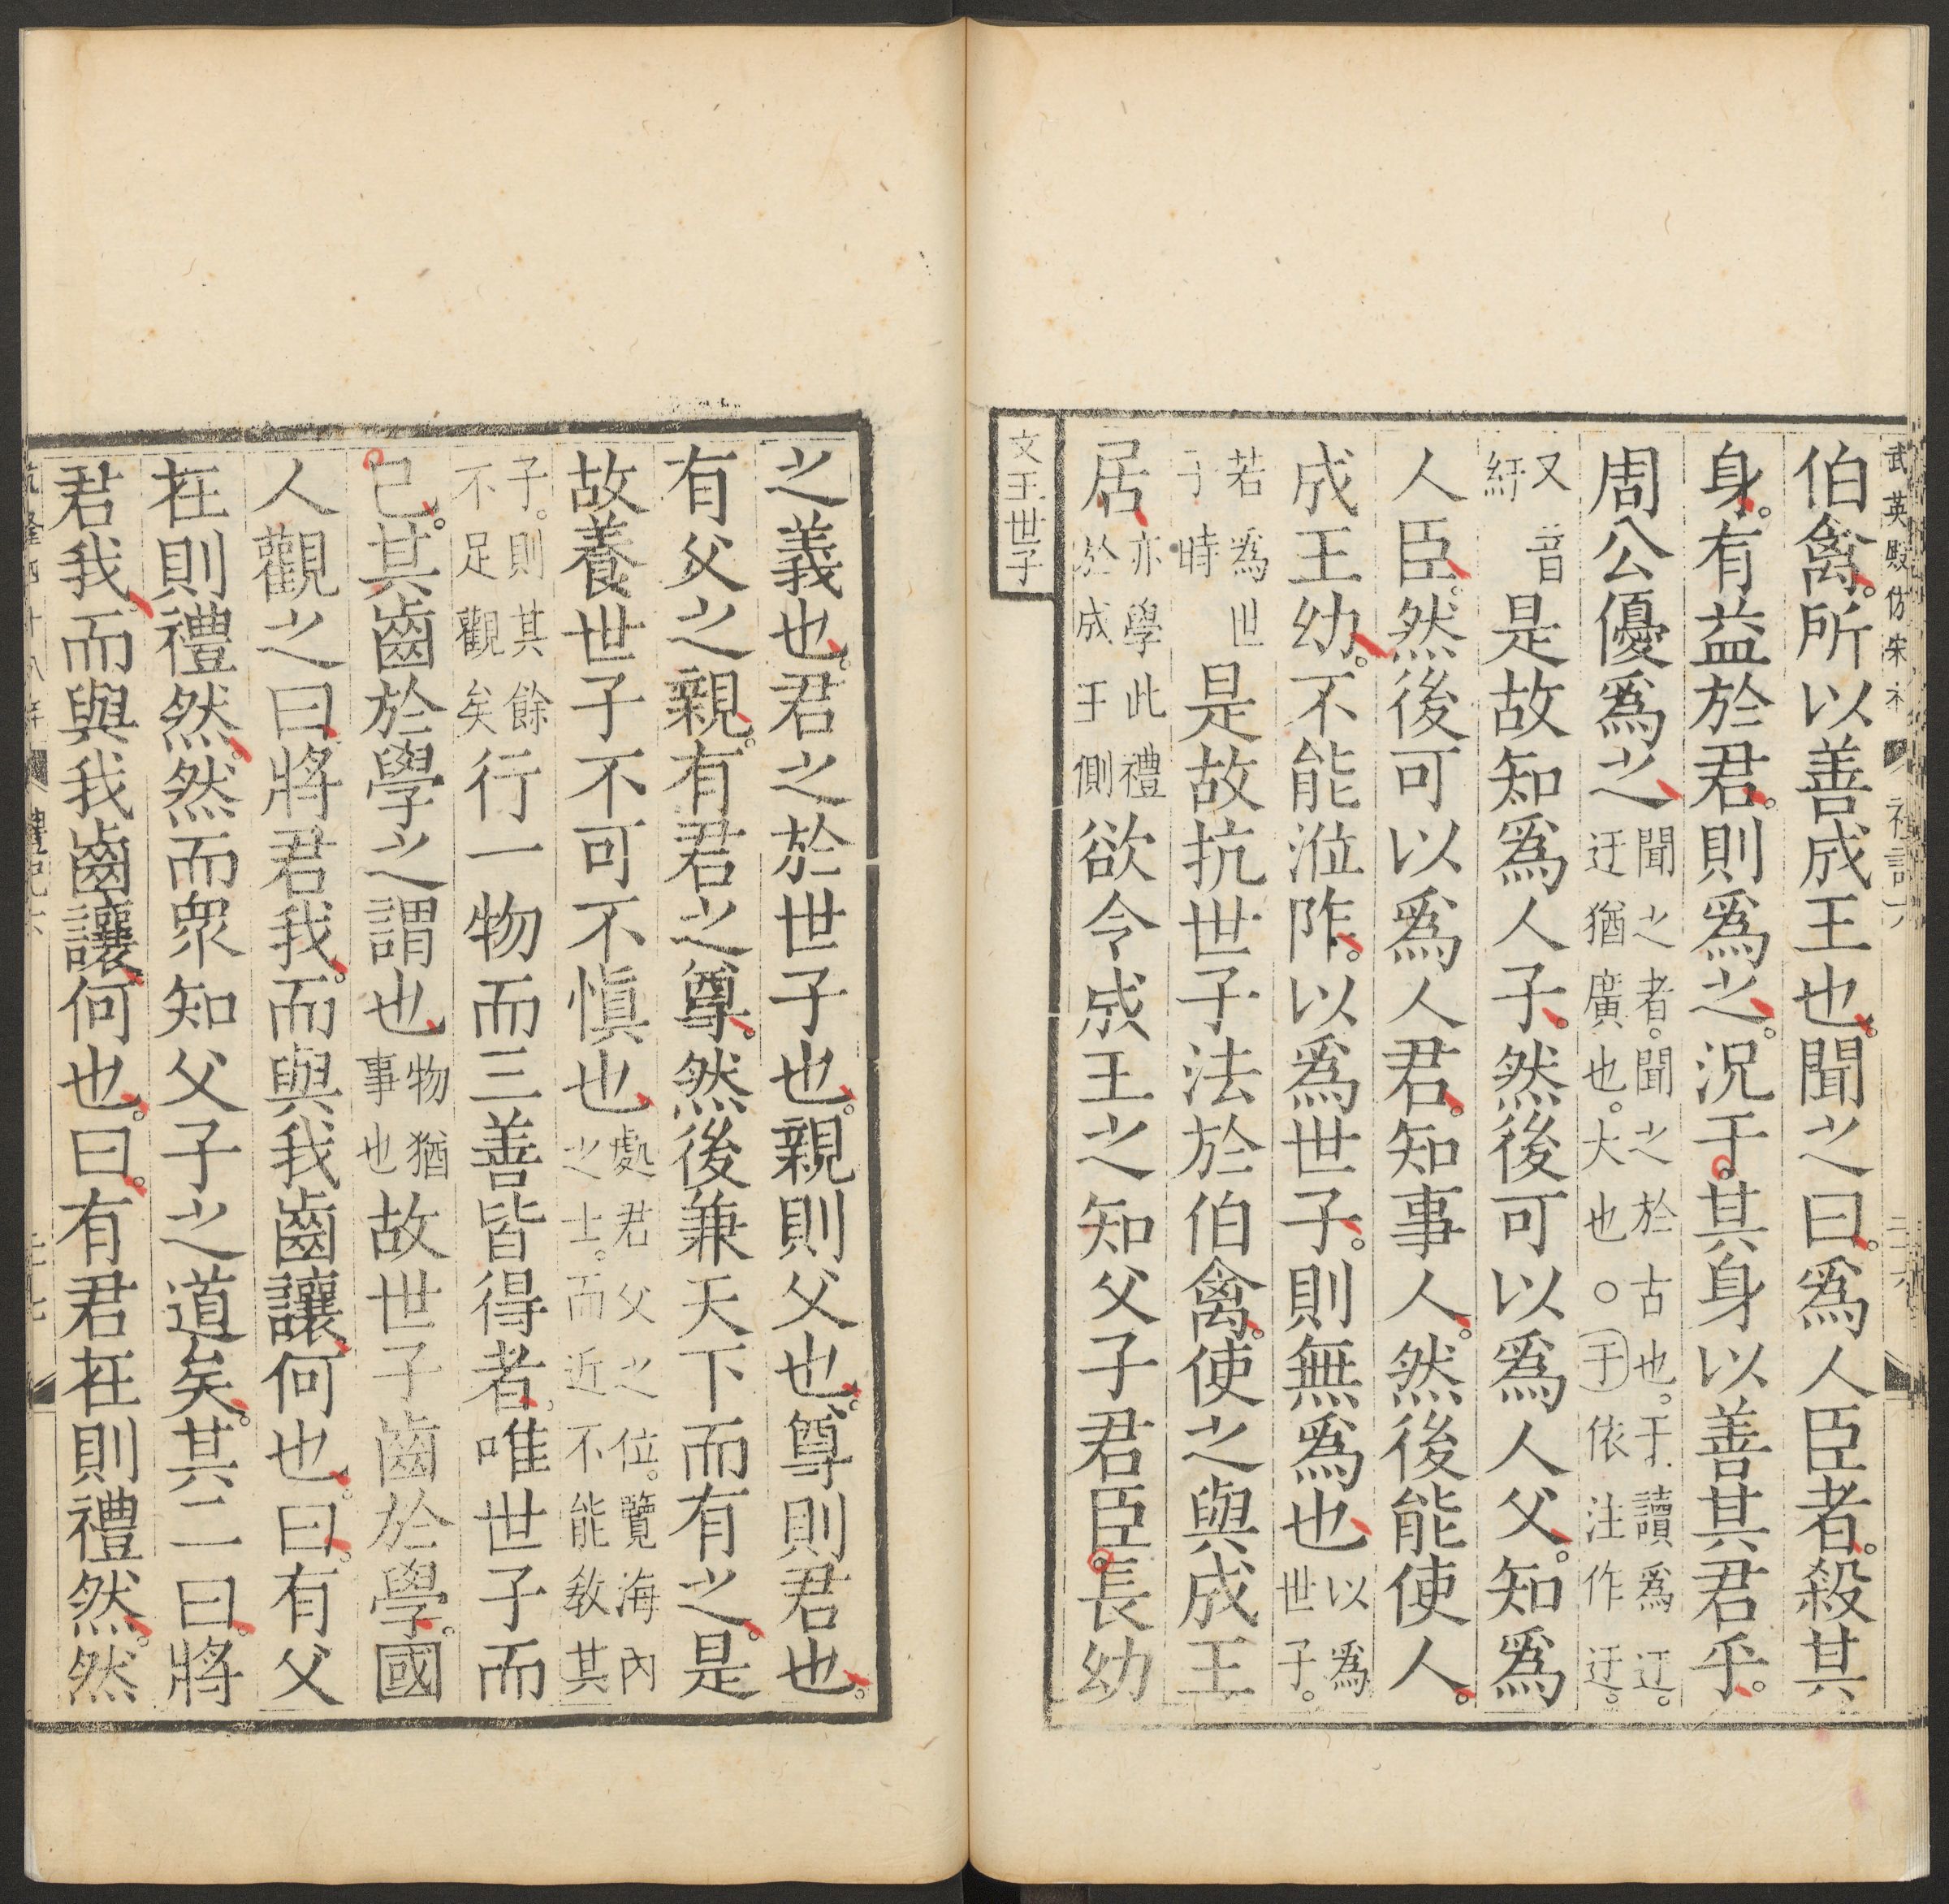 武英殿仿宋本 禮記六 二十六
伯禽。所以善成王也。聞之曰。爲人臣者。殺其
身。有益於君。則爲之。況于。其身以善其君乎。
周公優爲之聞之者。聞之於古也。于讀爲迂。迂猶廣也。大也。○于依注作迂。
又音紆是故知爲人子。然後可以爲人父。知爲
人臣。然後可以爲人君。知事人。然後能使人。
成王幼。不能涖阼。以爲世子。則無爲也以爲世子。
若爲世子時是故抗世子法於伯禽。使之與成王
居亦學此禮於成王側欲令成王之知父子君臣。長幼
文王世子
之義也。君之於世子也。親則父也。尊則君也。
有父之親。有君之尊。然後兼天下而有之。是
故養世子不可不愼也處君父之位。覽海內之士。而近不能敎其
子。則其餘不足觀矣行一物而三善皆得者。唯世子而
已。其齒於學之謂也物猶事也故世子齒於學。國
人觀之曰將君我。而與我齒讓何也。曰。有父
在則禮然。然而眾知父子之道矣。其二曰。將
君我而與我齒讓何也。曰。有君在則禮然。然
乾隆四十八年 禮記六 二十七